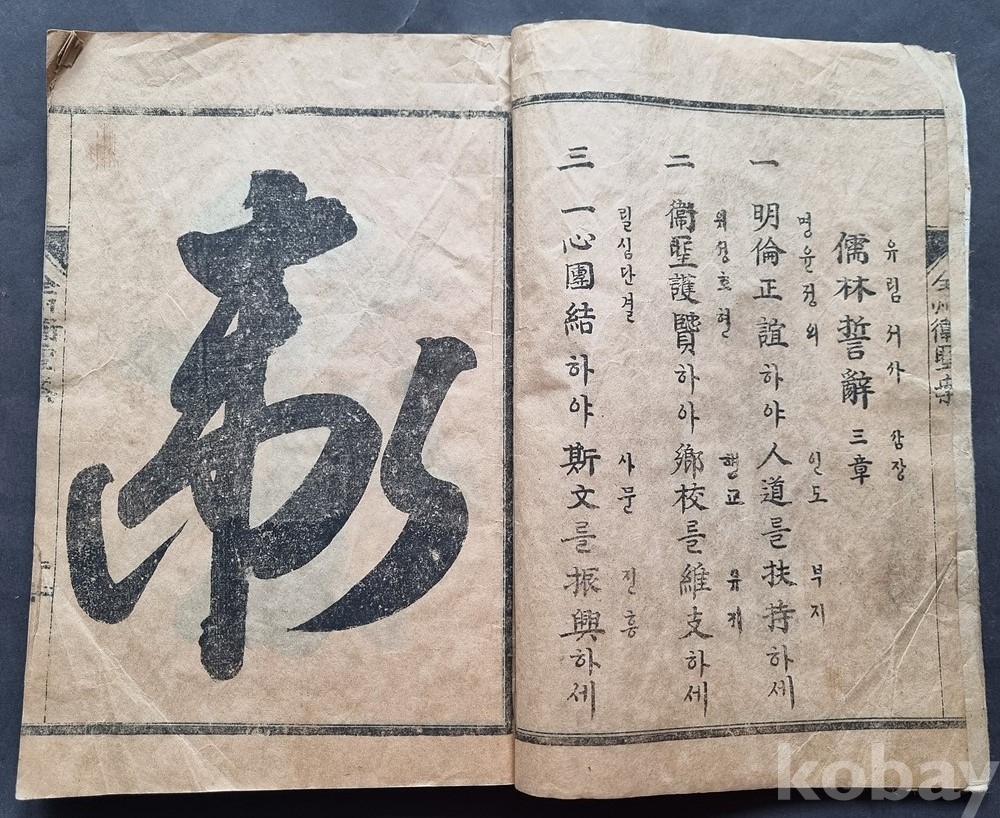 유림서사 삼장
儒林誓辭 三章
명윤정의 인도 부지
一 明倫正誼하야人道를扶持하세
위성호현 향교 유지
二 衛聖護賢하야鄕校를維支하세
일심단결 사문 진흥
三 一心團結하야斯文를振興하세
kobay